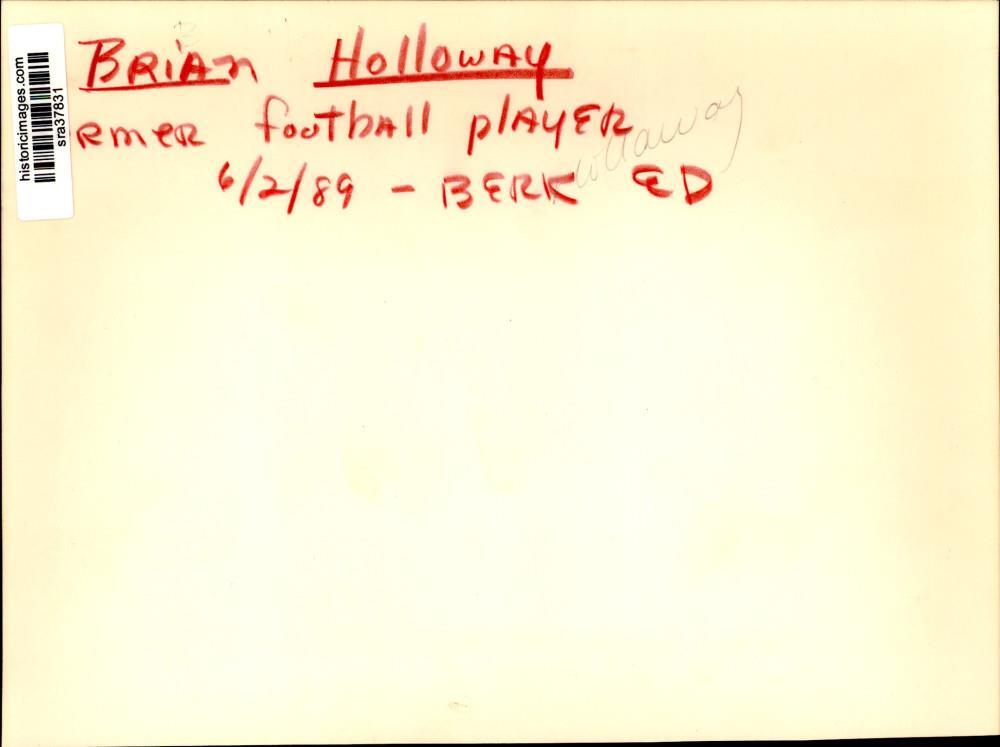 BRiAn Holloway
ermer football player
6/2/89 - BERK ED
Hollaway
historicimages.com
sra37831